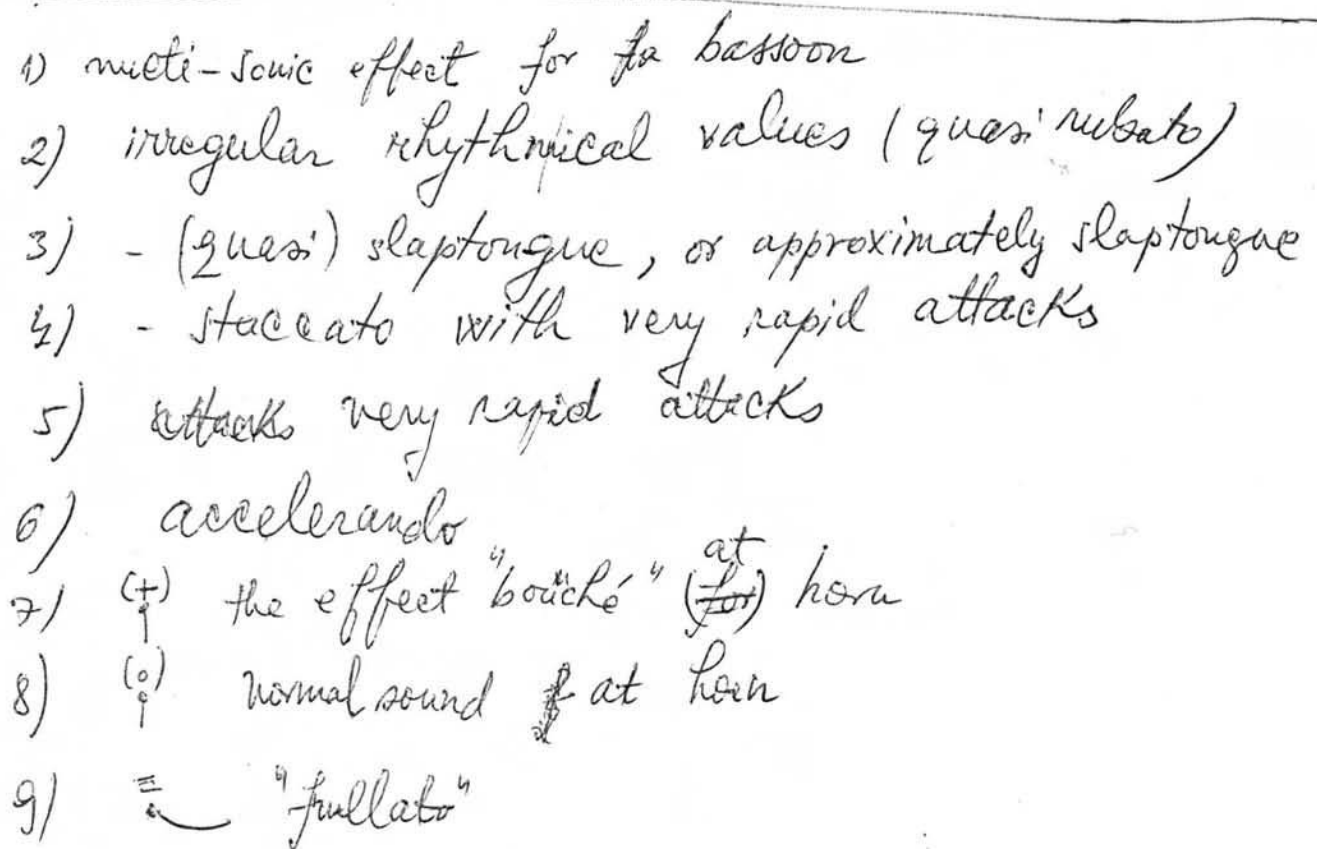 1) multi-sonic effect for fa bassoon
2) irregular rhythmical values (quasi rubato)
3) - (quasi) slaptongue, or approximately slaptongue
4) - staccato with very rapid attacks
5) attacks very rapid attacks
6) accelerando
7) (+) the effect "bouché" (for) at horn
8) (o) normal sound at horn
9) "frullato"